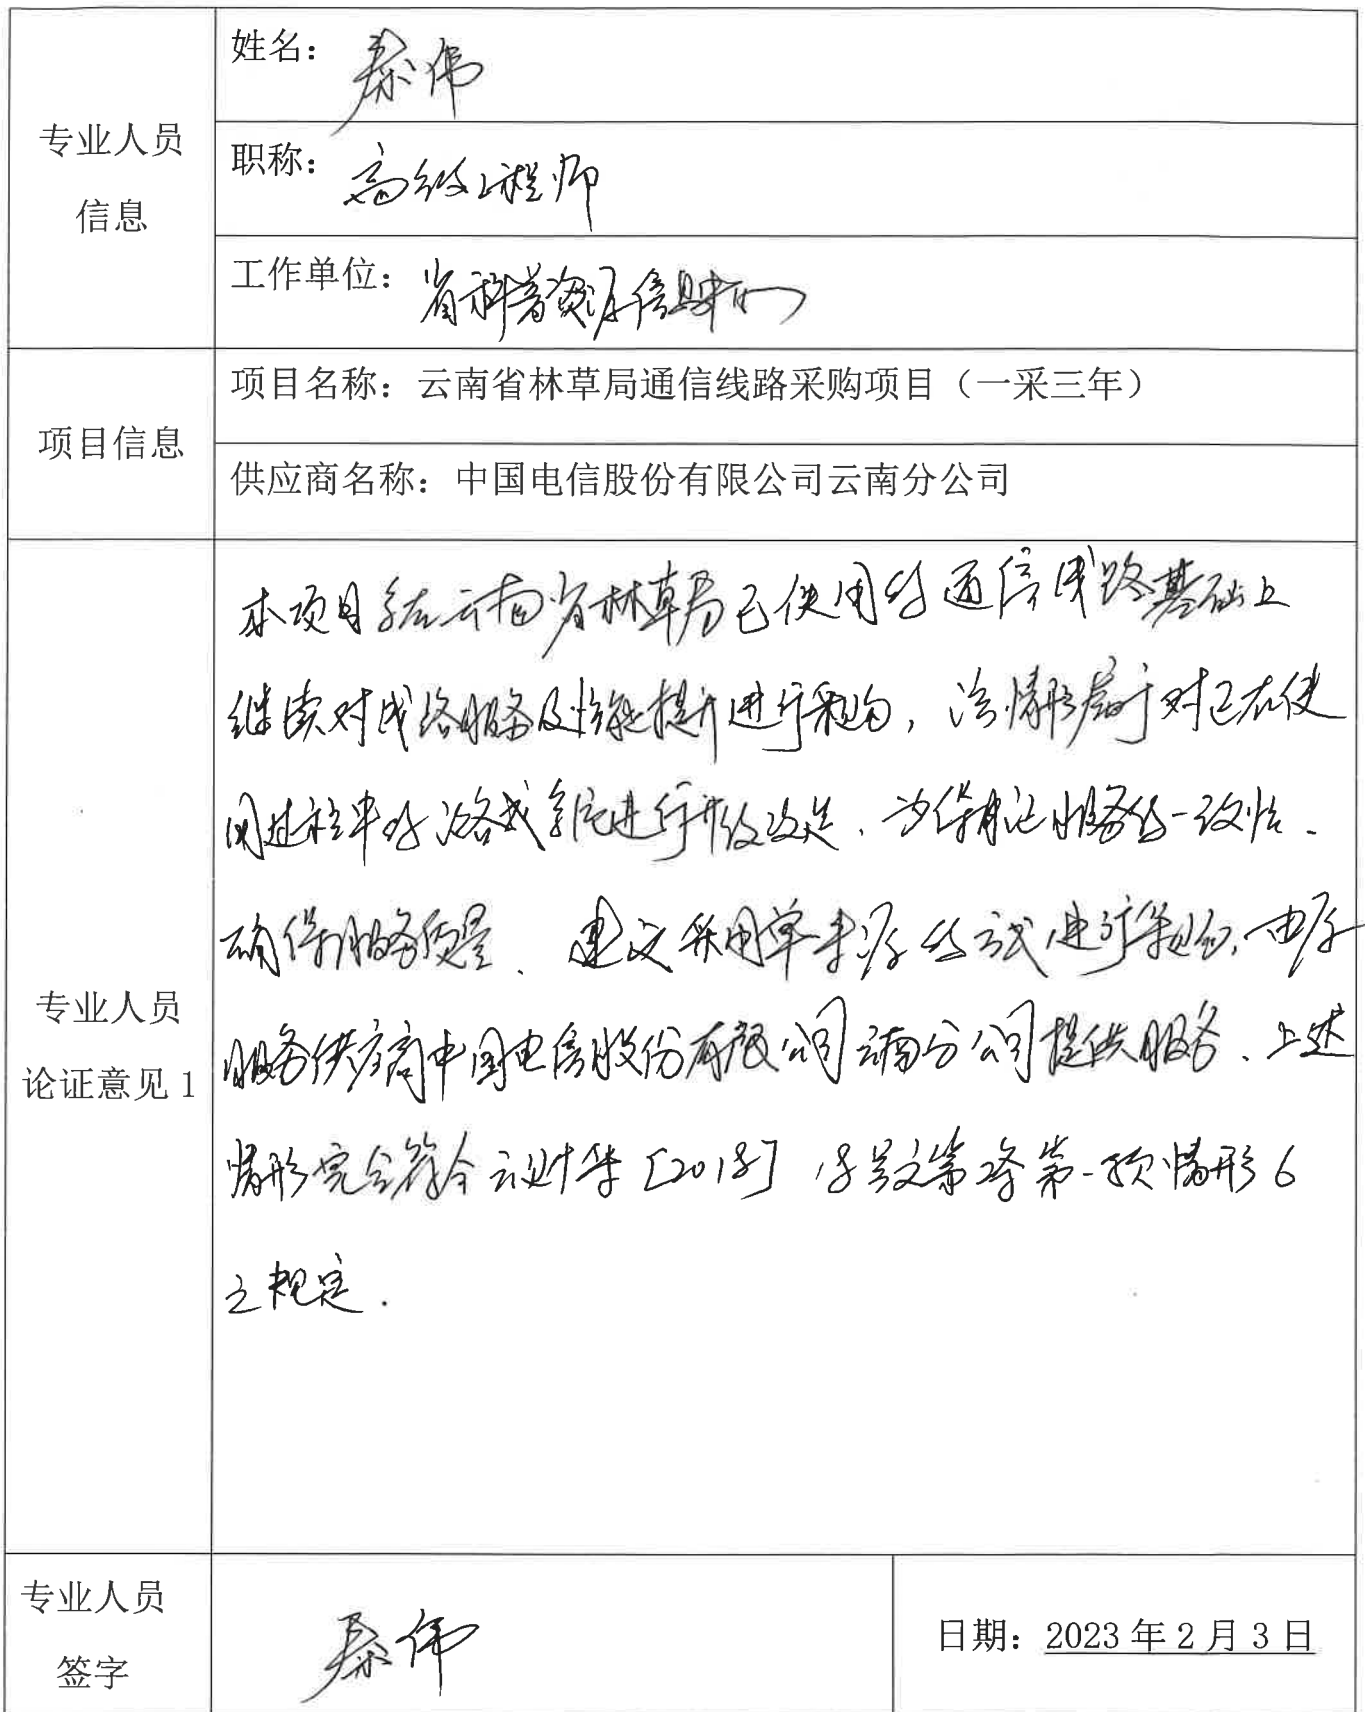 姓名：秦伟
专业人员
信息
职称：高级工程师
工作单位：省科普资源信息中心
项目信息
项目名称：云南省林草局通信线路采购项目（一采三年）
供应商名称：中国电信股份有限公司云南分公司
专业人员
论证意见1
本项目系在云南省林草局已使用的通信线路基础上
继续对线路服务及性能提升进行采购，该情形属于对已在使
用过程中的网络或系统进行升级改造、为保证服务的一致性、
确保服务质量、建议采用单一来源的方式进行采购，由原
服务供应商中国电信股份有限公司云南分公司提供服务、上述
情形完全符合云财采[2018]18号文第2条第一款情形6
之规定.
专业人员
签字
秦伟
日期：2023年2月3日